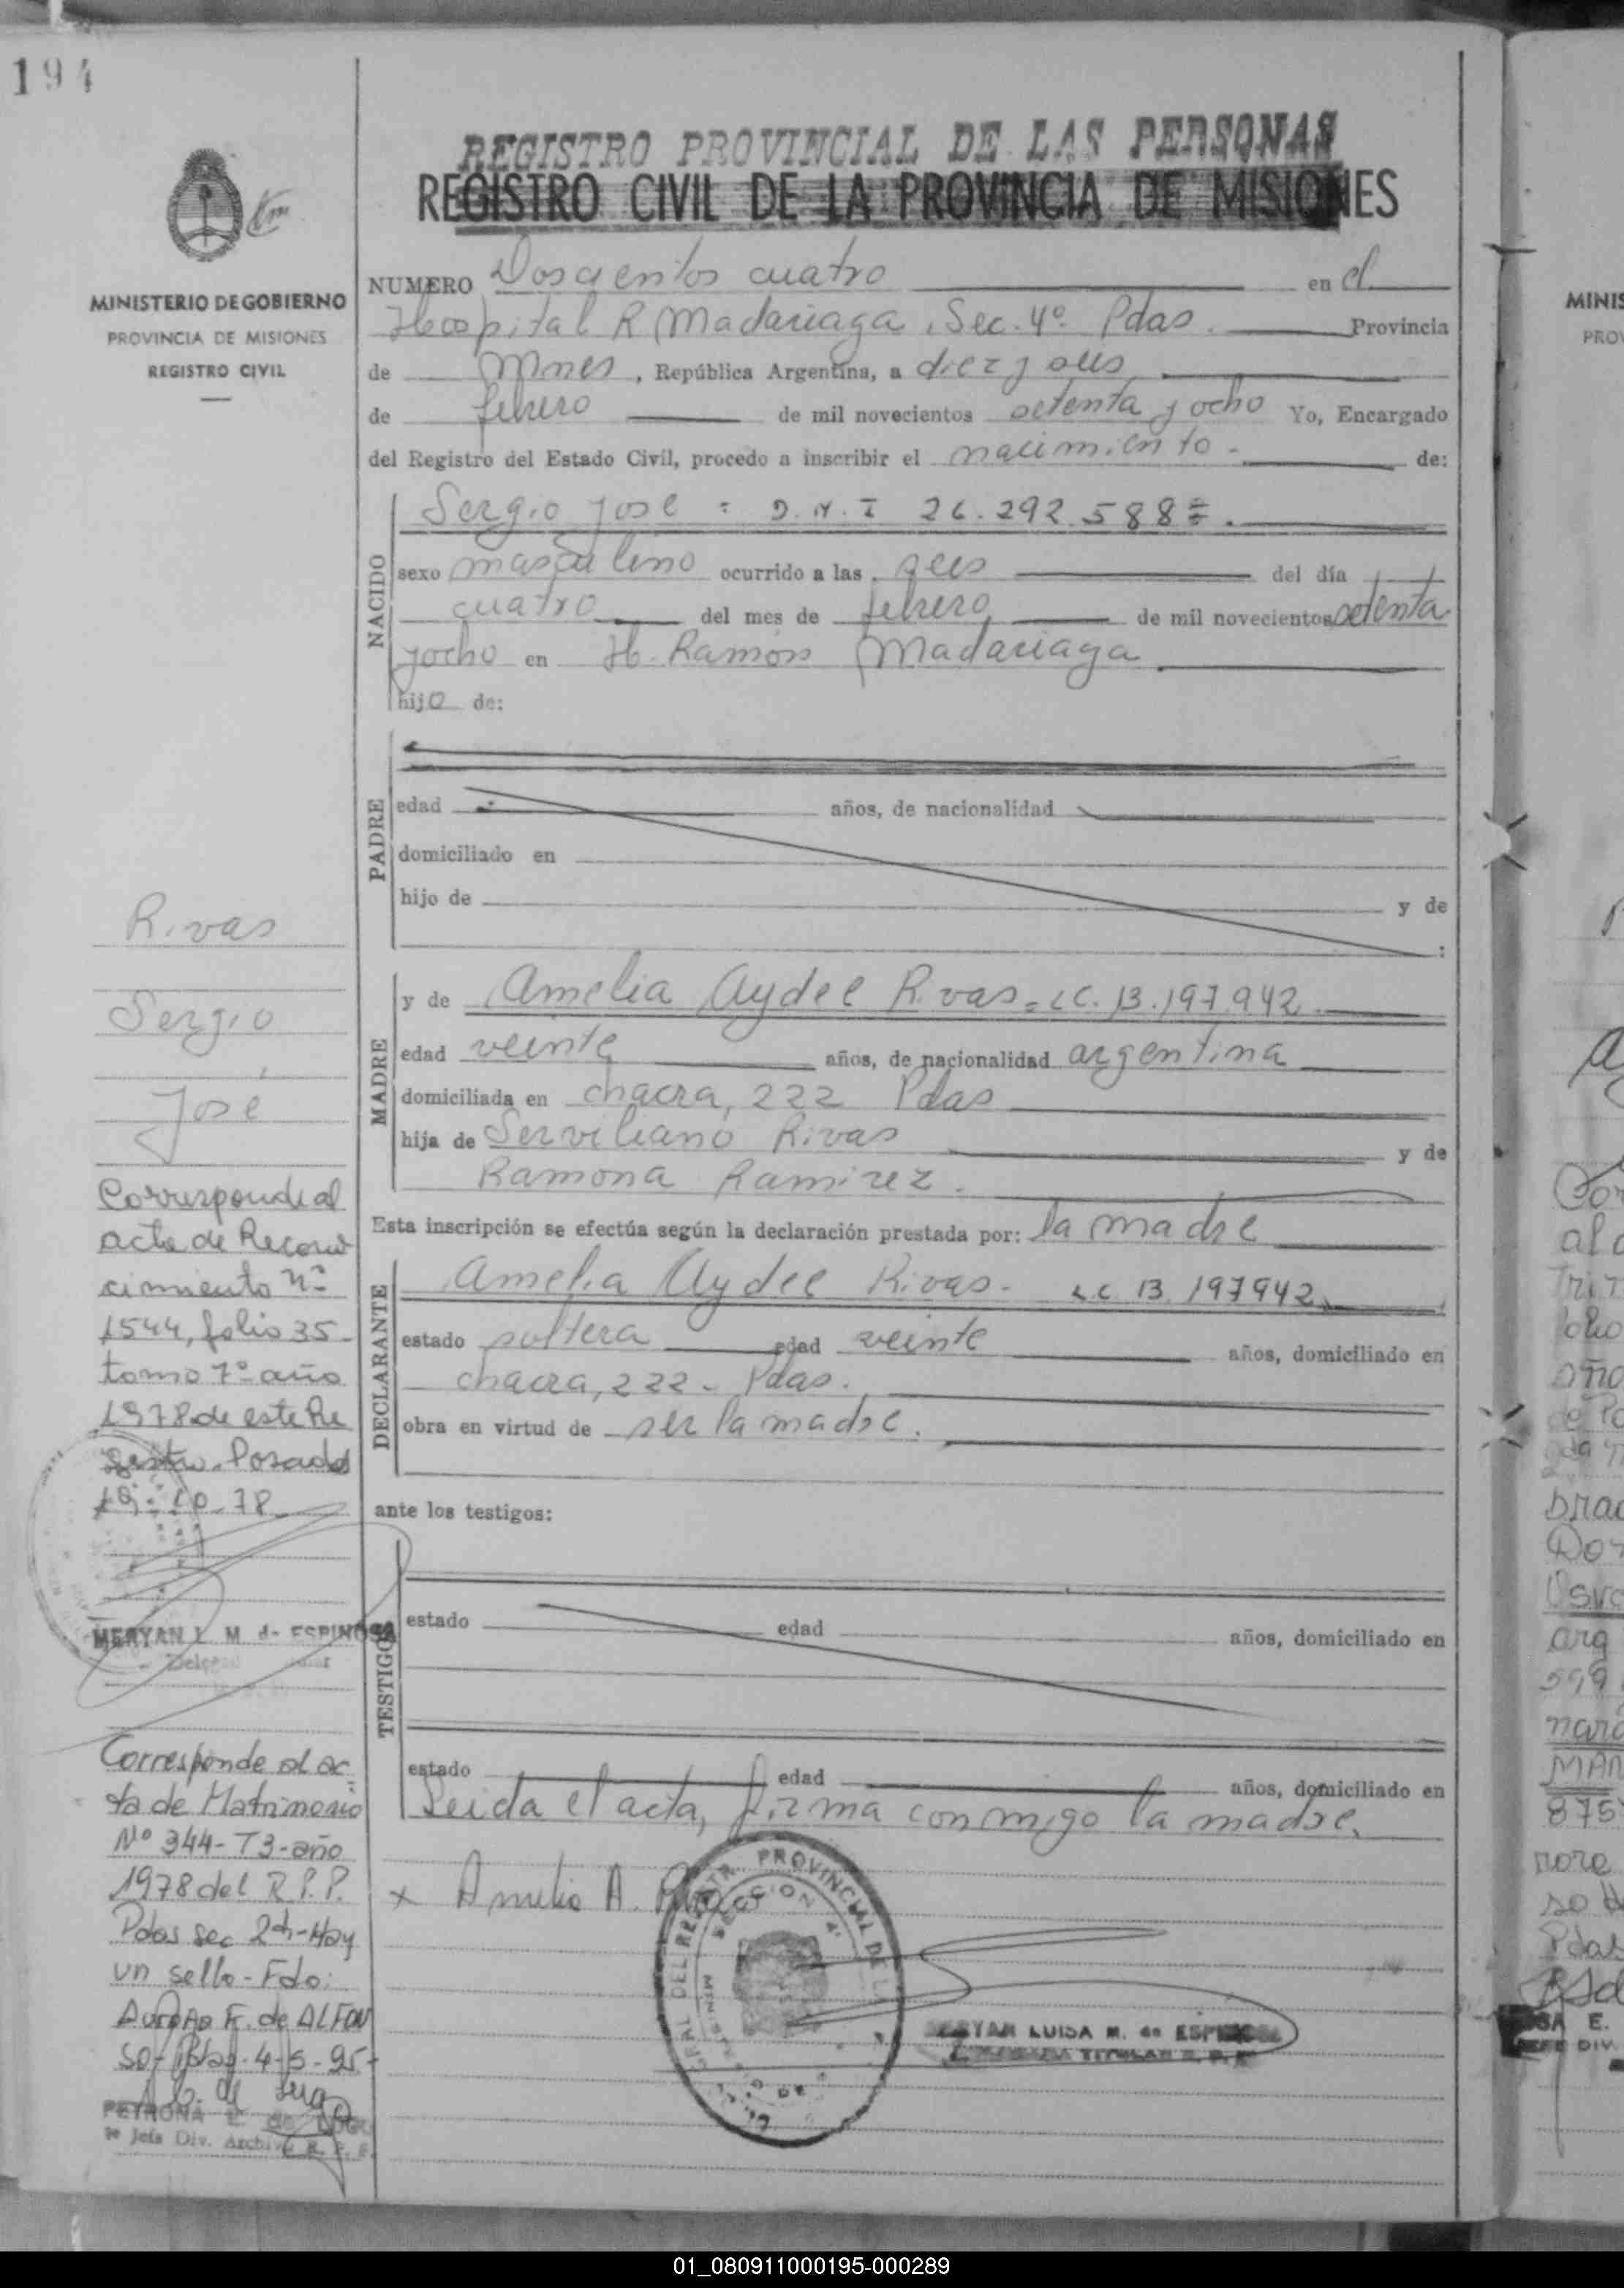 194
REGISTRO PROVINCIAL DE LAS PERSONAS
REGISTRO CIVIL DE LA PROVINCIA DE MISIONES
MINISTERIO DE GOBIERNO
PROVINCIA DE MISIONES
REGISTRO CIVIL
NUMERO Doscientos cuatro en el
Hospital R Madariaga, Sec. 4º Pdas. Provincia
de Mnes, República Argentina, a diez y seis
de febrero de mil novecientos setenta y ocho Yo, Encargado
del Registro del Estado Civil, procedo a inscribir el nacimiento - de:
NACIDO
Sergio José = D.N.I 26.292.588=.
sexo masculino ocurrido a las seis del día
cuatro del mes de febrero de mil novecientos setenta
y ocho en H. Ramón Madariaga.
hijo de:
PADRE
edad años, de nacionalidad
domiciliado en
hijo de y de
MADRE
y de Amelia Aydee Rivas = LC. 13.197.942.
edad veinte años, de nacionalidad argentina
domiciliada en chacra, 222 Pdas
hija de Serviliano Rivas y de
Ramona Ramirez.
Esta inscripción se efectúa según la declaración prestada por: la madre
DECLARANTE
Amelia Aydee Rivas - LC 13.197942.
estado soltera edad veinte años, domiciliado en
chacra, 222 - Pdas.
obra en virtud de ser la madre.
ante los testigos:
TESTIGOS
estado edad años, domiciliado en
estado edad años, domiciliado en
Leida el acta, firma conmigo la madre.
x Amelia A. Rivas
MERYAN LUISA M. de ESPINOSA
Rivas
Sergio
José
Corresponde al
acta de Recono
cimiento Nº
1544, folio 35-
tomo 7º año
1978 de este Re
gistro. Posadas
19-10-78
MERYAN L. M. de ESPINOSA
Corresponde al ac-
ta de Matrimonio
Nº 344-T3-año
1978 del R.P.P.
Pdas sec 2da-Hay
un sello-Fdo:
Aurora F. de ALFON
SO- Pdas. 4-5-95-
PETRONA
Jefe Div. Archivo R. P. P.
MINIS
PRO
01_080911000195-000289